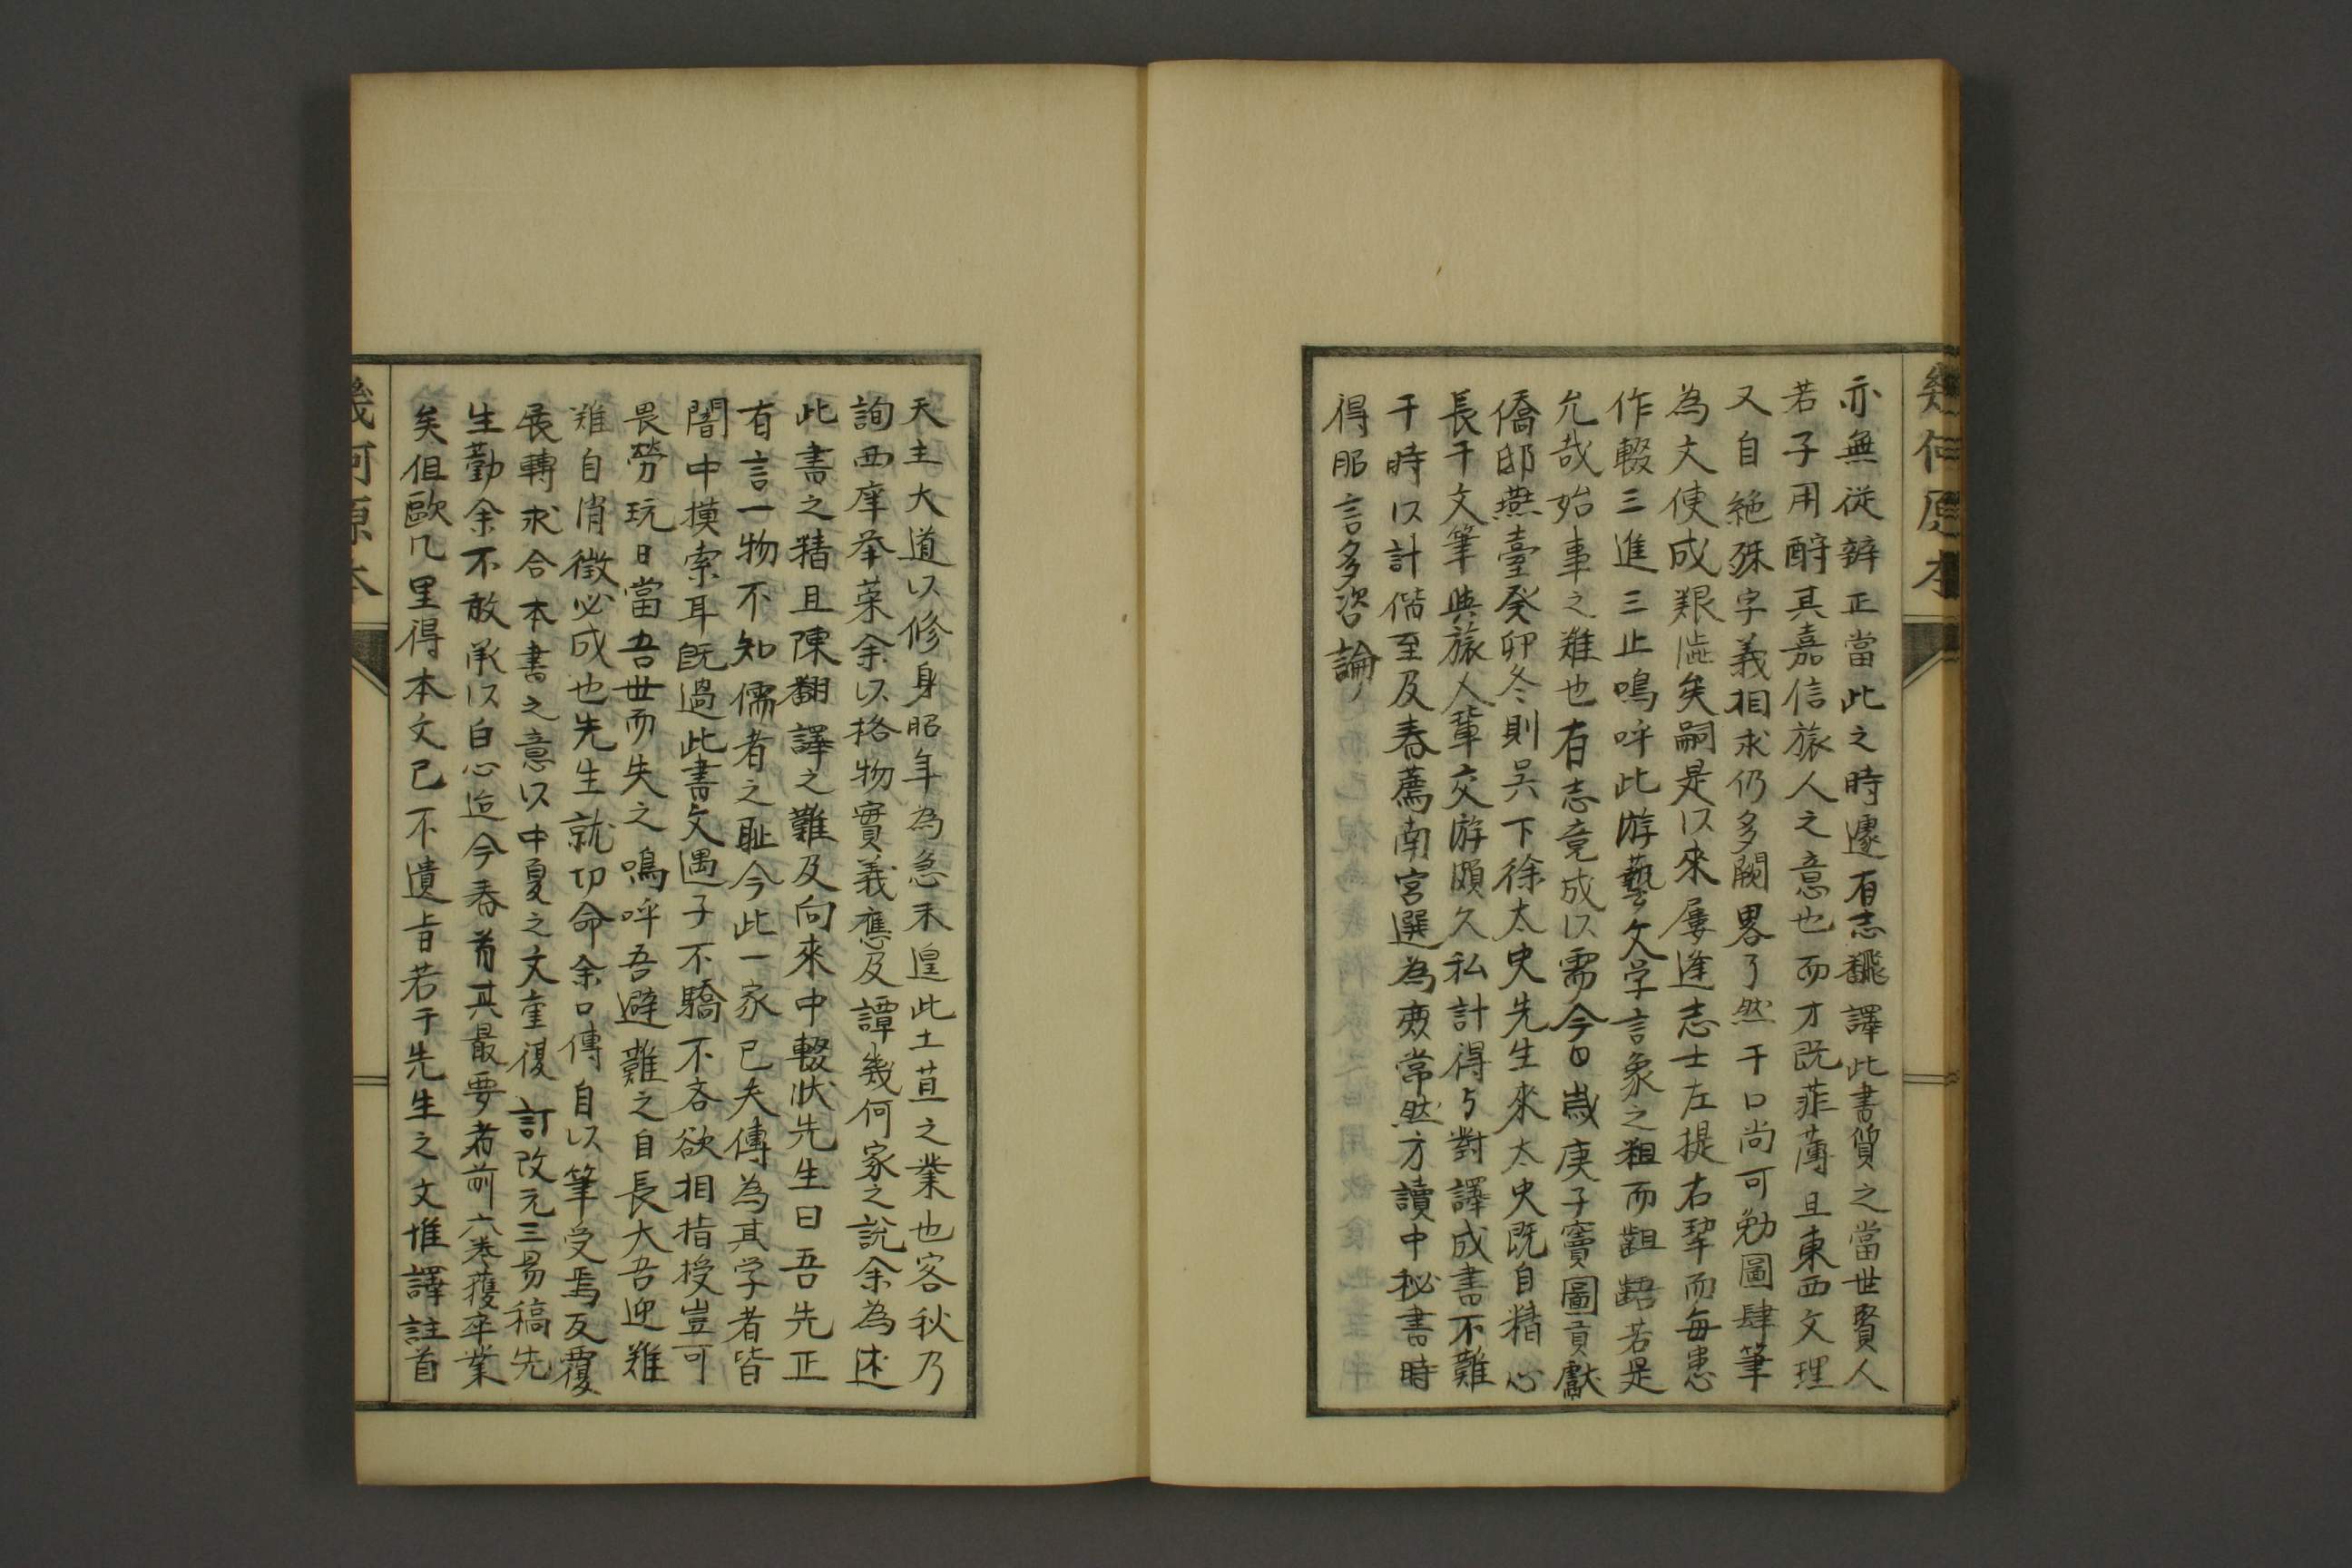 幾何原本
亦無從辨正當此之時遽有志繙譯此書質之當世賢人
若子用酧其嘉信旅人之意也而才既菲薄且東西文理
又自絶殊字義相求仍多闕畧了然干口尚可勉圖肆筆
為文使成艱澁矣嗣是以來屢逢志士左提右挈而每患
作輟三進三止嗚呼此游藝文学言象之粗而齟齬若是
允哉始事之難也有志竟成以需今日歲庚子竇圖貢獻
僑邸燕臺癸卯冬則吳下徐太史先生來太史既自精心
長干文筆與旅人輩交游頗久私計得与對譯成書不難
干時以計偕至及春薦南宮選為庶常然方讀中秘書時
得昭言多咨論
天主大道以修身昭年為急未遑此土苴之業也客秋乃
詢西庠舉業余以格物實義應及譚幾何家之說余為述
此書之精且陳翻譯之難及向來中輟狀先生曰吾先正
有言一物不知儒者之耻今此一家已失傳為其学者皆
闇中摸索耳既過此書文遇子不驕不吝欲相指授豈可
畏勞玩日當吾世而失之嗚呼吾避難之自長大吾迎難
難自消徵必成也先生就功命余口傳自以筆受焉反覆
展轉求合本書之意以中夏之文重復訂改元三易稿先
生勤余不敢承以白心迄今春首其最要者前六卷獲卒業
矣但歐几里得本文已不遺旨若干先生之文惟譯註首
幾何原本